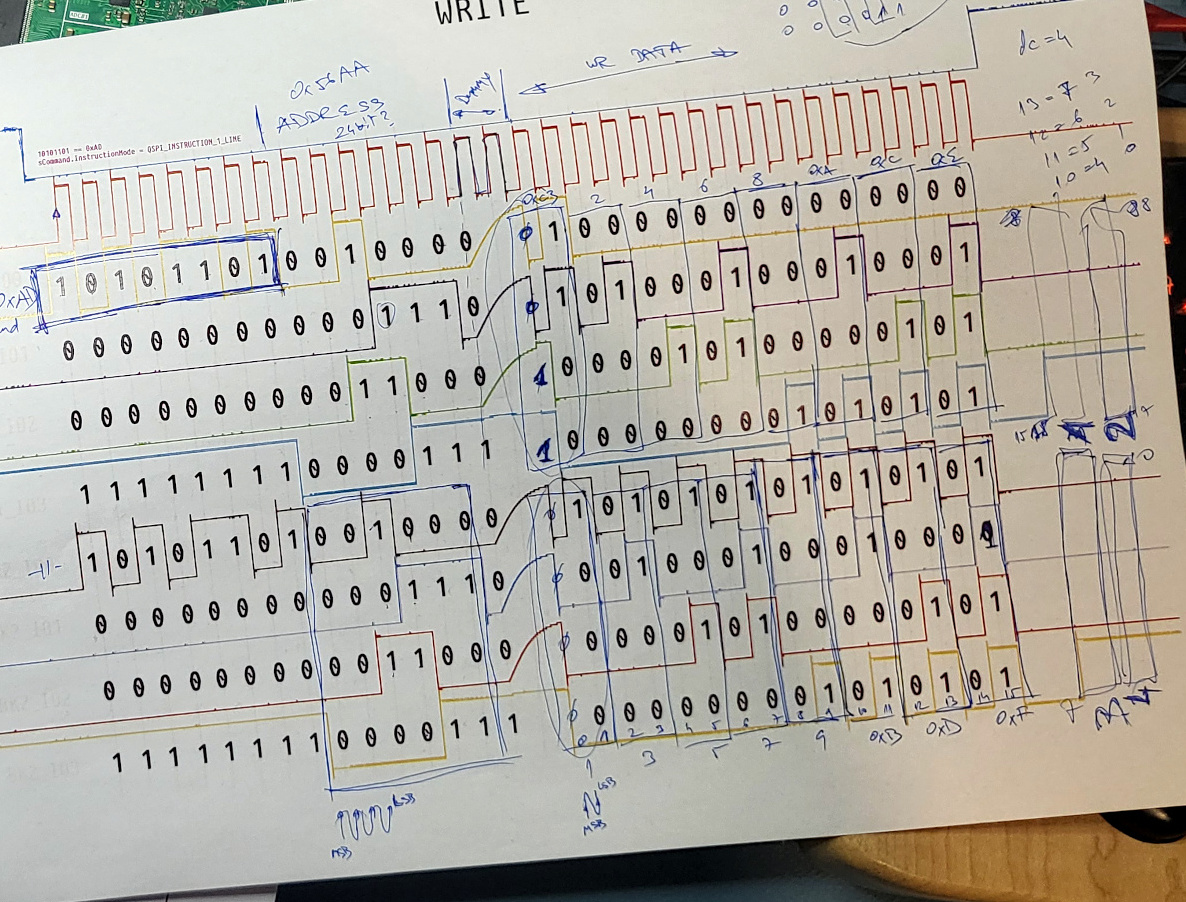 WRITE
WR DATA
dc=4
0x56AA
ADDRESS
24bit?
Dummy
10101101 == 0xAD
sCommand.instructionMode = QSPI_INSTRUCTION_1_LINE
13=7 3
12=6 2
11=5
10=4 0
0xC3 2 4 6 8 0xA 0xC 0xE
0xAD
1 0 1 0 1 1 0 1 0 0 1 0 0 0 0 0 1 0 0 0 0 0 0 0 0 0 0 0 0 0 0
0 0 0 0 0 0 0 0 0 0 0 1 1 1 0 0 1 0 1 0 0 0 1 0 0 0 1 0 0 0 1
0 0 0 0 0 0 0 0 0 0 1 1 0 0 0 1 0 0 0 0 1 0 1 0 0 0 0 0 1 0 1
1 1 1 1 1 1 1 1 0 0 0 0 1 1 1 1 0 0 0 0 0 0 0 0 1 0 1 0 1 0 1
-11- 1 0 1 0 1 1 0 1 0 0 1 0 0 0 0 0 1 0 1 0 1 0 1 0 1 0 1 0 1 0 1
0 0 0 0 0 0 0 0 0 0 0 1 1 1 0 0 0 0 1 0 0 0 1 0 0 0 1 0 0 0 0
0 0 0 0 0 0 0 0 0 0 1 1 0 0 0 0 0 0 0 0 1 0 1 0 0 0 0 0 1 0 1
1 1 1 1 1 1 1 1 0 0 0 0 1 1 1 0 0 0 0 0 0 0 0 0 1 0 1 0 1 0 1
0 1 2 3 4 5 6 7 8 9 10 11 12 13 14 15
1 3 5 7 9 0xB 0xD 0xF
LSB
MSB
LSB
MSB